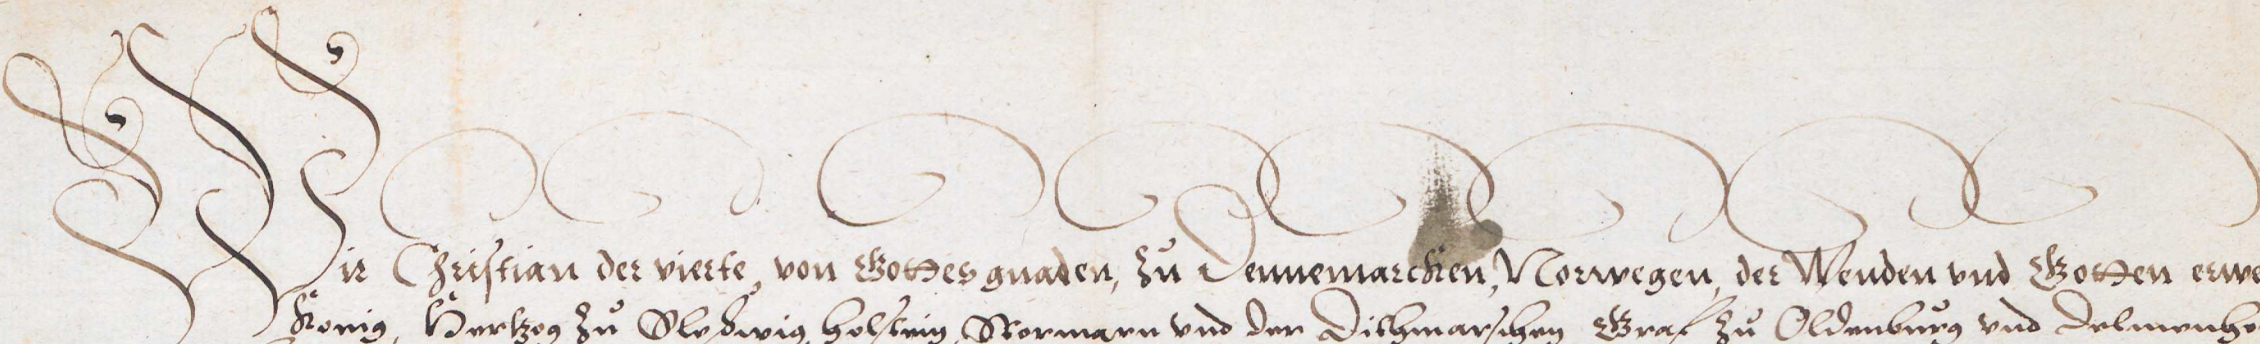 Wir Christian der vierte, von Gottes gnaden, zu Dennemarcken, Norwegen, der Wenden vnd Gotten erwe
König, Hertzog zu Sleßwig, Holstein, Stormarn vnd der Dithmarschen Graf zu Oldenburg vnd Delmenho